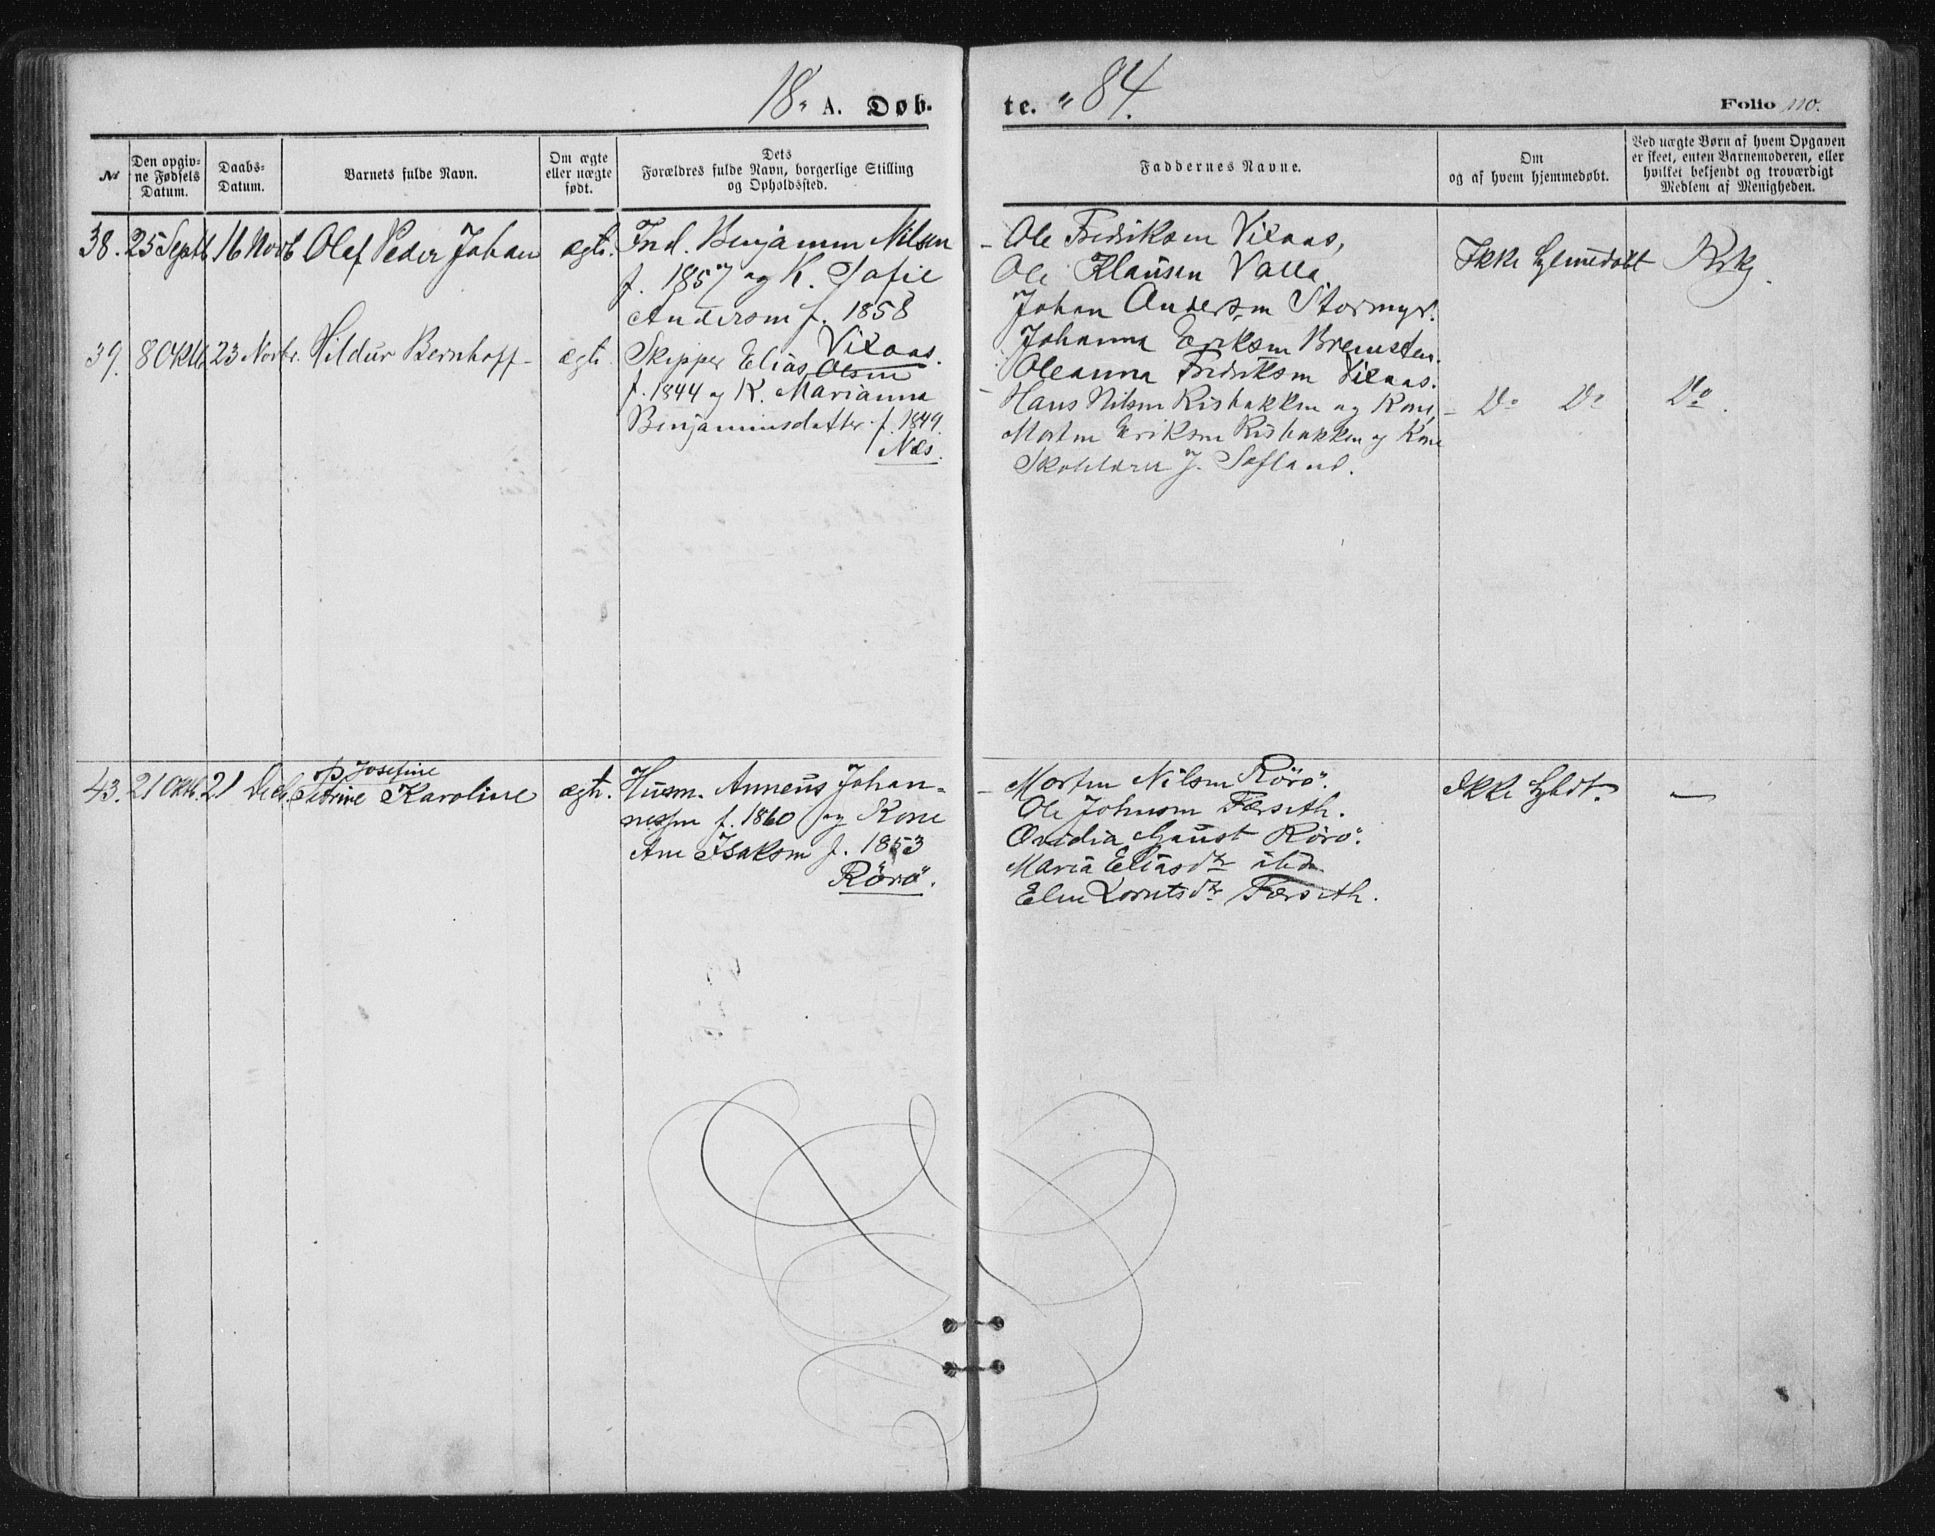 18 A. Døb-
te. 84.
Folio 110.
№
Den opgiv-
ne Fødsels
Datum.
Daabs-
Datum.
Barnets fulde Navn.
Om ægte
eller uægte
født.
Dets
Forældres fulde Navn, borgerlige Stilling
og Opholdssted.
Faddernes Navne.
Om
og af hvem hjemmedøbt.
Ved uægte Børn af hvem Opgaven
er skeet, enten Barnemoderen, eller
hvilket bekjendt og troværdigt
Medlem af Menigheden.
38. 25 Septb 16 Novb Olaf Peder Johan ægte.
Ind. Benjamin Nilsen
f. 1857 og K. Sofie
Andersen f. 1858
Vikaas.
Ole Fredriksen Vikaas,
Ole Klausen Valla
Johan Andersen Stormyr.
Johanna Eriksen Bremsten.
Oleanna Fredriksen Vikaas.
Ikke hjemmedøbt
39. 8 Oktb. 23 Novbr. Hildur Bernhoff ægte.
Skipper Elias Olsen
f. 1844 og K. Marianna
Benjaminsdatter f. 1849.
Næs.
Hans Nilsen Risbakken og Kone,
Morten Eriksen Risbakken og Kone
J. Sofland.
Do Do
Do.
43. 21 Oktb. 21 Decb. Petrine Karoline ægte.
Josefine
Husm. Anneus Johan-
nessen f. 1860 og Kone
Ane Isaksen f. 1853
Rörö.
Morten Nilsen Rörö.
Ole Johnsen Forseth.
Ovidia Gaust Rörö.
Maria Eliasdtr ibd
Elen Lorntsdtr Forseth.
Ikke hjbdt.
—